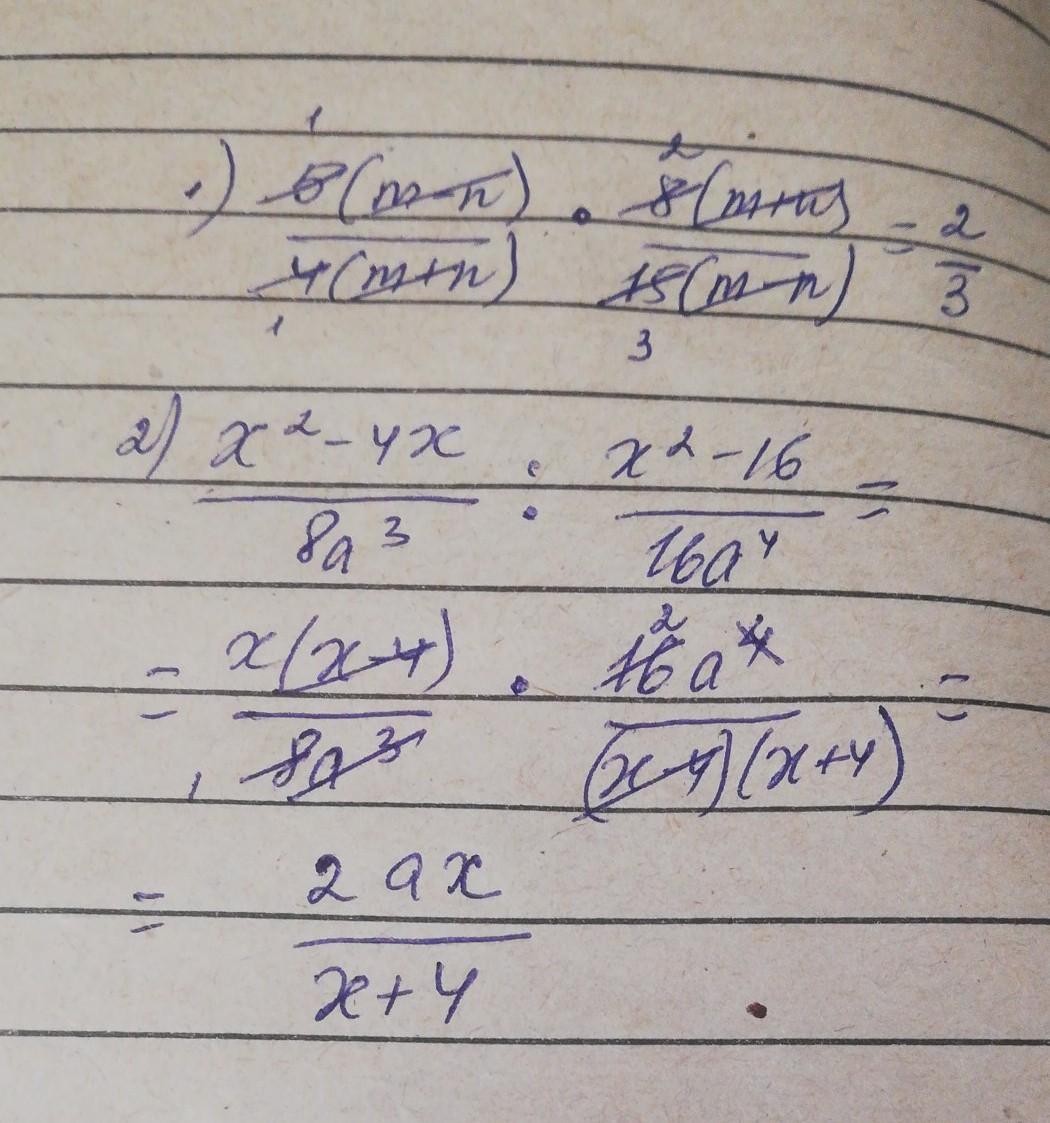 1) 5(m-n)/4(m+n) · 8(m+n)/15(m-n) = 2/3
1 2
1 3
2) x²-4x/8a³ : x²-16/16a⁴ =
= x(x-4)/8a³ · 16a⁴/(x-4)(x+4) =
2
1
= 2ax/x+4